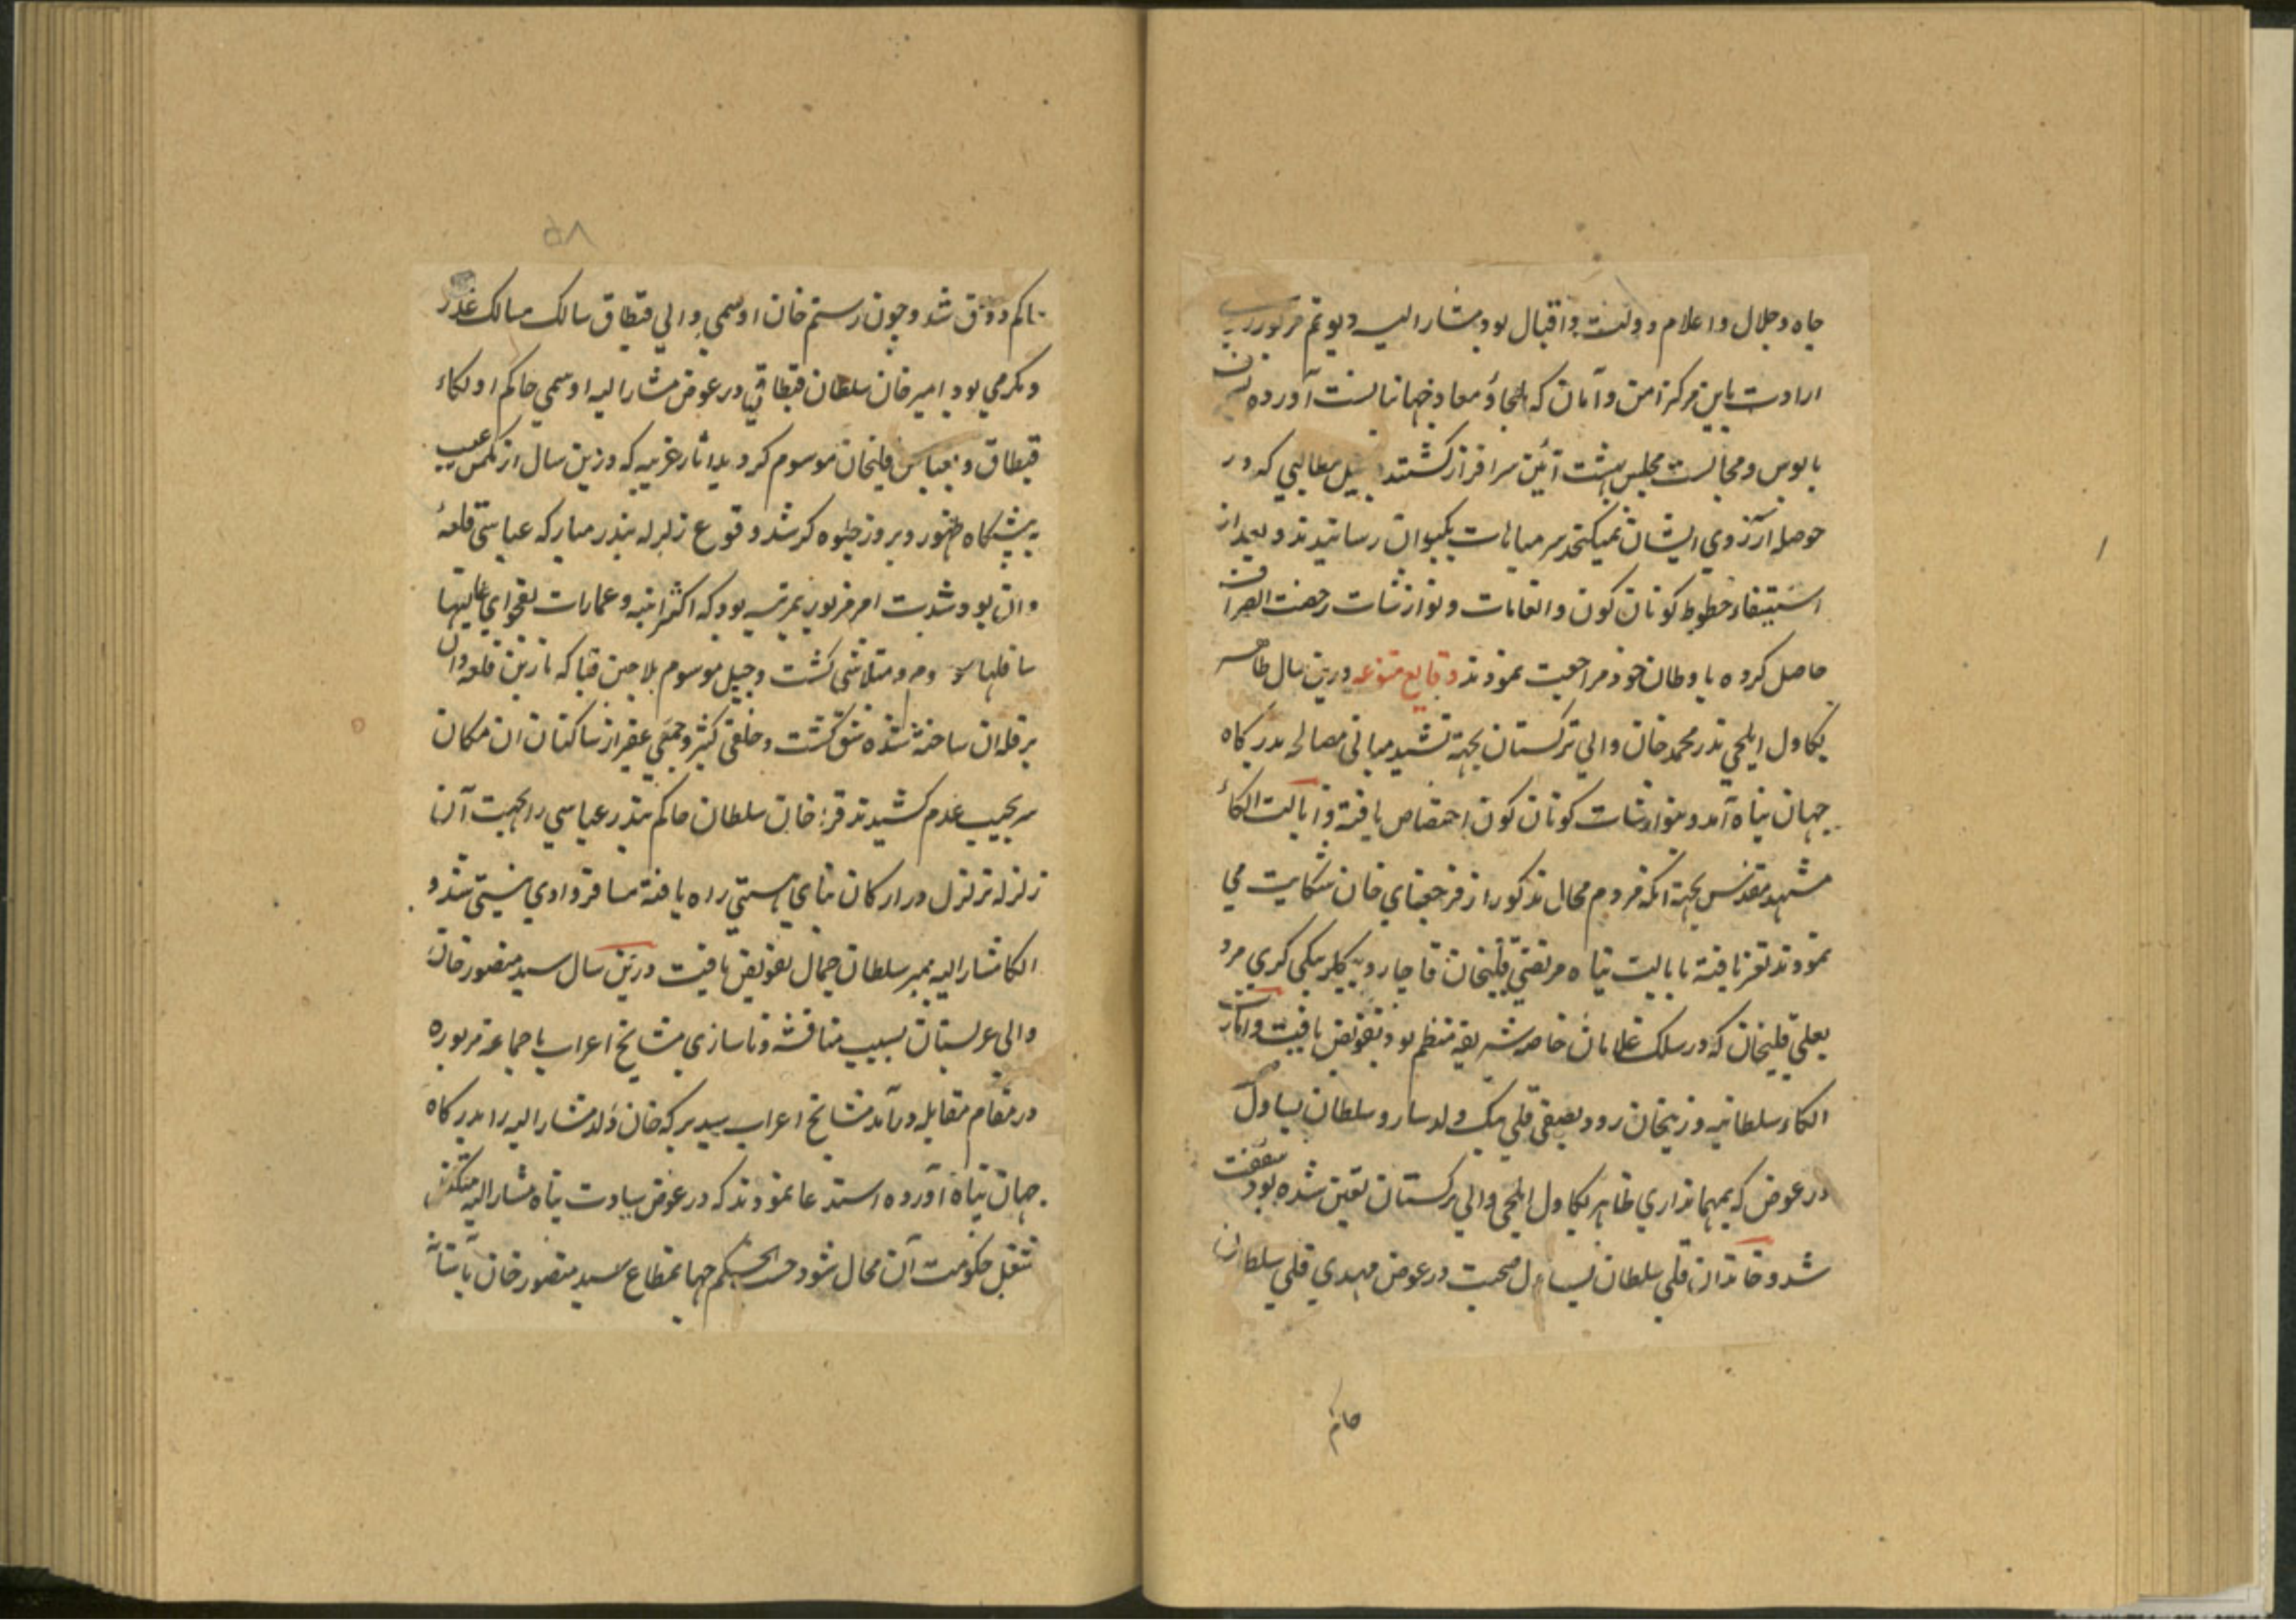 جاه و جلال و اعلام دولت و اقبال بود مشار الیه و یوتم مزبور
ارادت باین مرکز امن و امان که ملجاء و معاد جهانیانست آورده
بابوس و مجالست مجلس بهشت آئین سرافراز گشتند و بنیل مطالبی که در
حوصله آرزوی ایشان نمیکنجد سر مباهات بکیوان رسانیدند و بعد از
استیفاء حظوظ کوناکون و انعامات و نوازشات رخصت انصراف
حاصل کرده باوطان خود مراجعت نمودند وقایع متنوعه درین سال طاهر
یکاول ایلچی ندر محمد خان والی ترکستان بجهة تشیید مبانی مصالحه بدرکاه
جهان پناه آمد و بنوازشات کوناکون اختصاص یافته و ایالت الکاء
مشهد مقدس بجهة انکه مردم محال مذکور از قرجغای خان شکایت می
نمودند تغیر یافته بایالت پناه مرتضی قلیخان قاجار و بیکلربیکی کری مرو
بعلی قلیخان که در سلک غلامان خاصه شریفه منتظم بود تفویض یافت و ایالت
الکاء سلطانیه و زنجان رود بصفی قلی بیک ولد سارو سلطان یساول
در عوض که بمهمانداری طاهر یکاول ایلچی والی ترکستان تعین شده بود
شد و خاندان قلی سلطان یساول صحبت در عوض مهدی قلی سلطان
حاکم
۵۸
حاکم دورق شد و چون رستم خان اوسمی والی قیطاق سالک مسالک غدر
و مکرمی بود امیر خان سلطان قیطاقی در عوض مشار الیه اوسمی حاکم اولکاء
قیطاق و بعباس قلیخان موسوم کردید آثار غریبه که درین سال از مکمن غیب
به پیشکاه ظهور و بروز جلوه کر شد وقوع زلزله بندر مبارکه عباسی قلعهٔ
وان بود شدت امر مزبور بمرتبه بود که اکثر ابنیه و عمارات بفحوای عالیها
سافلها و متلاشی کشت و جبل موسوم بلاجین قیا که نارین قلعه وان
بر قله ان ساخته شده شق کشت و خلقی کثیر و جمعی غفیر از ساکنان ان مکان
سر بجیب عدم کشیدند قرا خان سلطان حاکم بندر عباسی را بجهت آن
زلزله تزلزل در ارکان بنای هستی راه یافته مسافر وادی نیستی شد و
الکا مشار الیه بمیر سلطان جمال تفویض یافت درین سال سید منصور خان
والی عربستان بسبب مناقشه و ناسازی مشایخ اعراب با جماعه مزبوره
در مقام مقابله درآمد مشایخ اعراب سید برکه خان ولد مشار الیه را بدرکاه
جهان پناه آورده استدعا نمودند که در عوض سیادت پناه مشار الیه متکفل
شغل حکومت آن محال شود حسب الحکم جهانمطاع سید منصور خان باستان